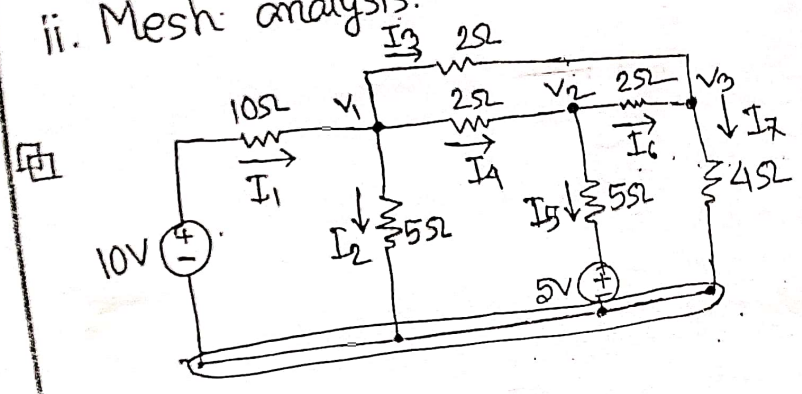 ii. Mesh analysis.
I3 2Ω
10Ω V1 2Ω V2 2Ω V3
I1 I4 I6 I7
10V + - I2 5Ω I5 5Ω 4Ω
5V + -